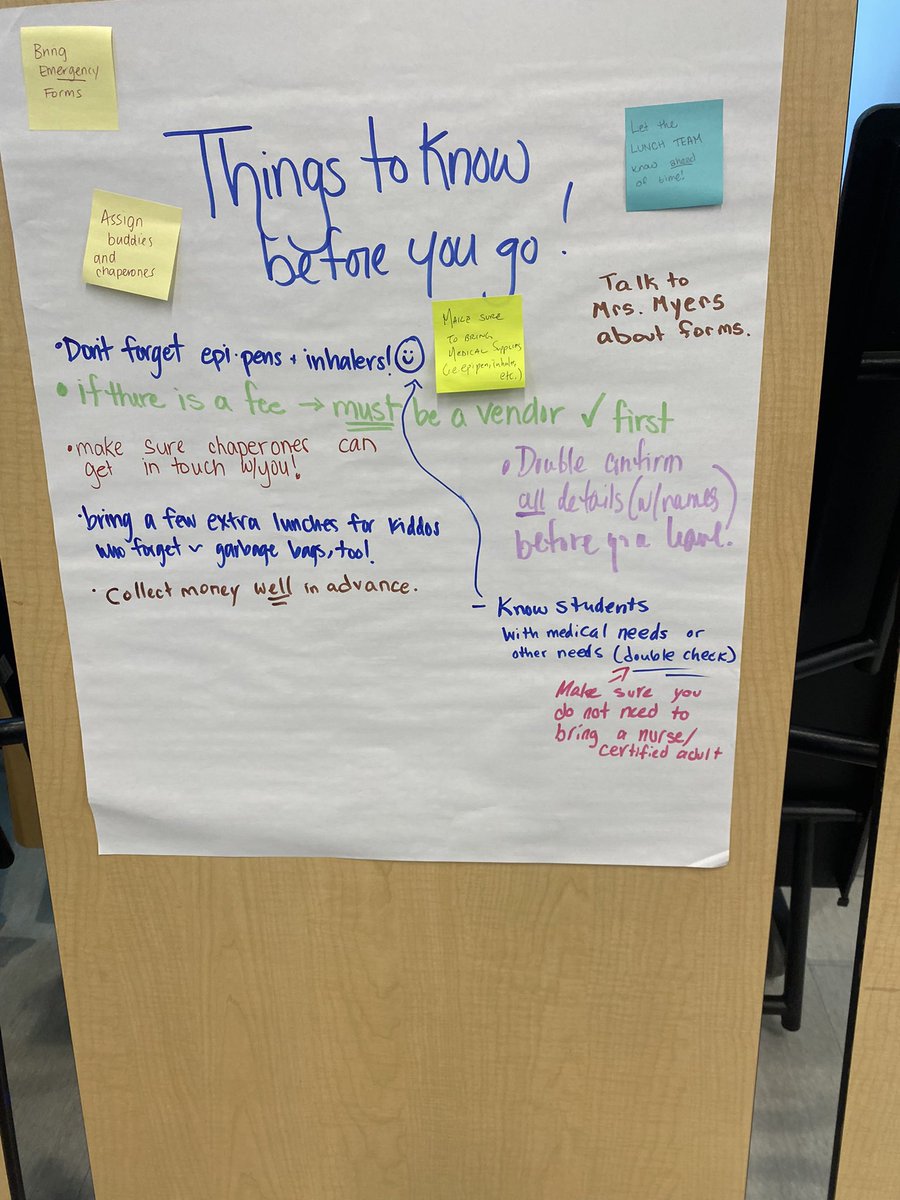 Bring
Emergency
Forms
Things to Know
before you go!
Let the
LUNCH TEAM
know ahead
of time!
Assign
buddies
and
chaperones
Talk to
Mrs. Myers
about forms.
MAKE SURE
TO BRING
MEDICAL SUPPLIES
(i.e. epi pen, inhaler,
etc.)
• Don't forget epi-pens + inhalers! ☺
• if there is a fee → must be a vendor ✓ first
• make sure chaperones can
get in touch w/you!
• Double confirm
all details (w/names)
before you leave!
• bring a few extra lunches for kiddos
who forget ~ garbage bags, too!
• Collect money well in advance.
– Know students
with medical needs or
other needs (double check)
Make sure you
do not need to
bring a nurse/
certified adult